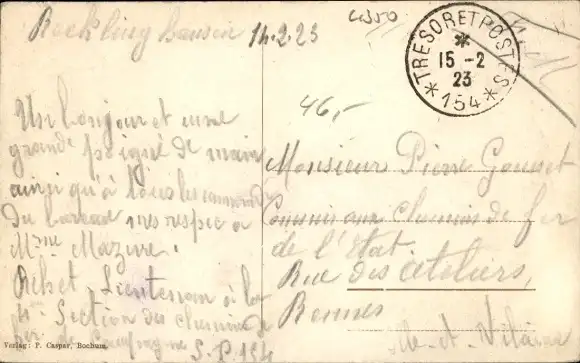 Recklinghausen 14.2.23
TRESOR ET POSTES
15 - 2
23
* 154 *
46,-
Un bonjour et une
grande poigné de main
ainsi qu'à tous les camarades
du bureau mes respec a
Mme Mazure.
Lieutenan à la
4me Section des chemins de
fer de Campagne S.P. 154
Monsieur Pierre Gousset
Commis aux chemins de fer
de l'Etat
Rue des Ateliers,
Rennes
Ille-et-Vilaine
Verlag: P. Caspar, Bochum.